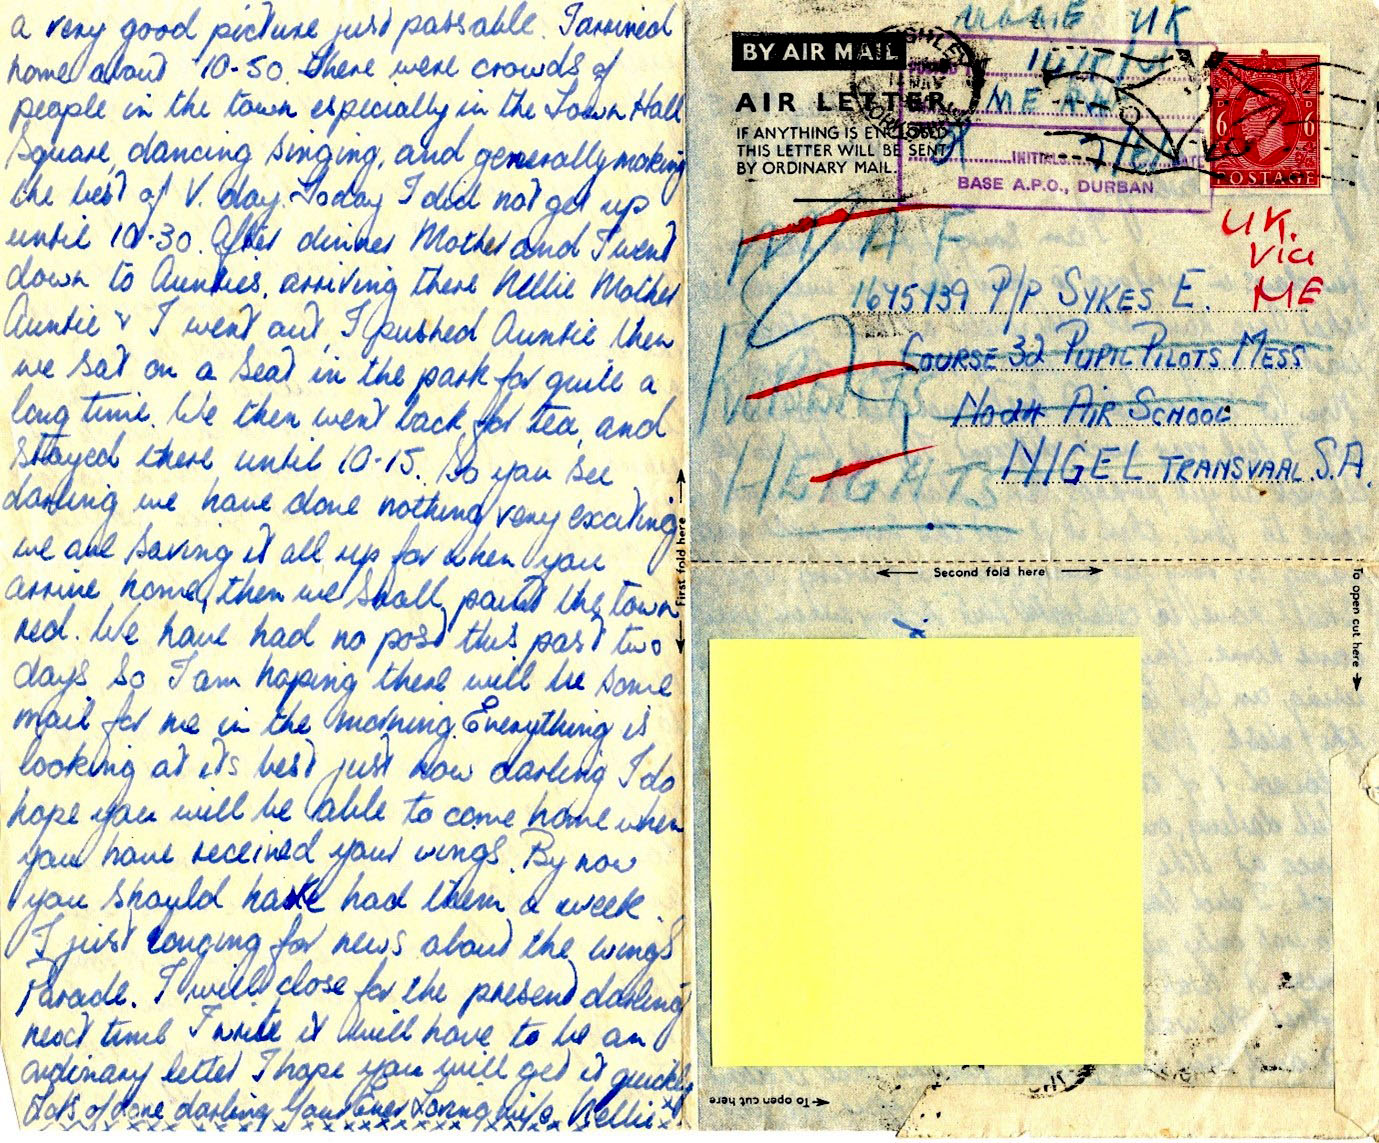 a very good picture just passable. I arrived
home about 10-50. There were crowds of
people in the town especially in the Town Hall
Square, dancing singing, and generally making
the best of V. day. Today I did not get up
until 10-30. After dinner Mother and I went
down to Aunties, arriving there Nellie Mother
Auntie & I went out, I pushed Auntie then
we sat on a seat in the park for quite a
long time. We then went back for tea, and
stayed there until 10-15. So you see
darling we have done nothing very exciting
we are saving it all up for when you
arrive home, then we shall paint the town
red. We have had no post this past two
days so I am hoping there will be some
mail for me in the morning. Everything is
looking at its best just now darling I do
hope you will be able to come home when
you have received your wings. By now
you should have had them a week.
I just longing for news about the wings
Parade. I will close for the present darling
next time I write it will have to be an
ordinary letter I hope you will get it quickly
Lots of love darling Your Ever Loving wife Nellie
xxxxxxxxxxxxxxxxxxxx
First fold here
UK
BY AIR MAIL
AIR LETTER
IF ANYTHING IS ENCLOSED
THIS LETTER WILL BE SENT
BY ORDINARY MAIL.
ME
INITIALS
DATE
BASE A.P.O., DURBAN
6 D 6 D
POSTAGE
UK.
via
ME
1675739 P/P SYKES E.
COURSE 32 PUPIL PILOTS MESS
No 24 AIR SCHOOL
HEIGHTS
NIGEL TRANSVAAL S.A.
Second fold here
To open cut here
To open cut here